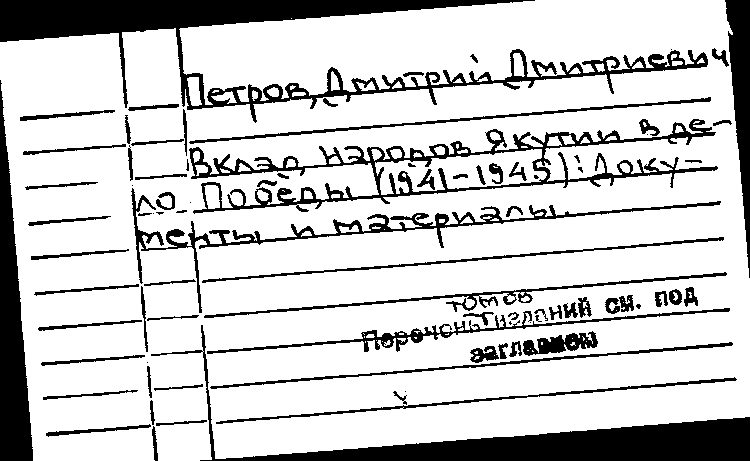 Петров, Дмитрий Дмитриевич
Вклад народов Якутии в де-
ло Победы (1941-1945): Доку-
менты и материалы.
томов
Перечень изданий см. под
заглавием